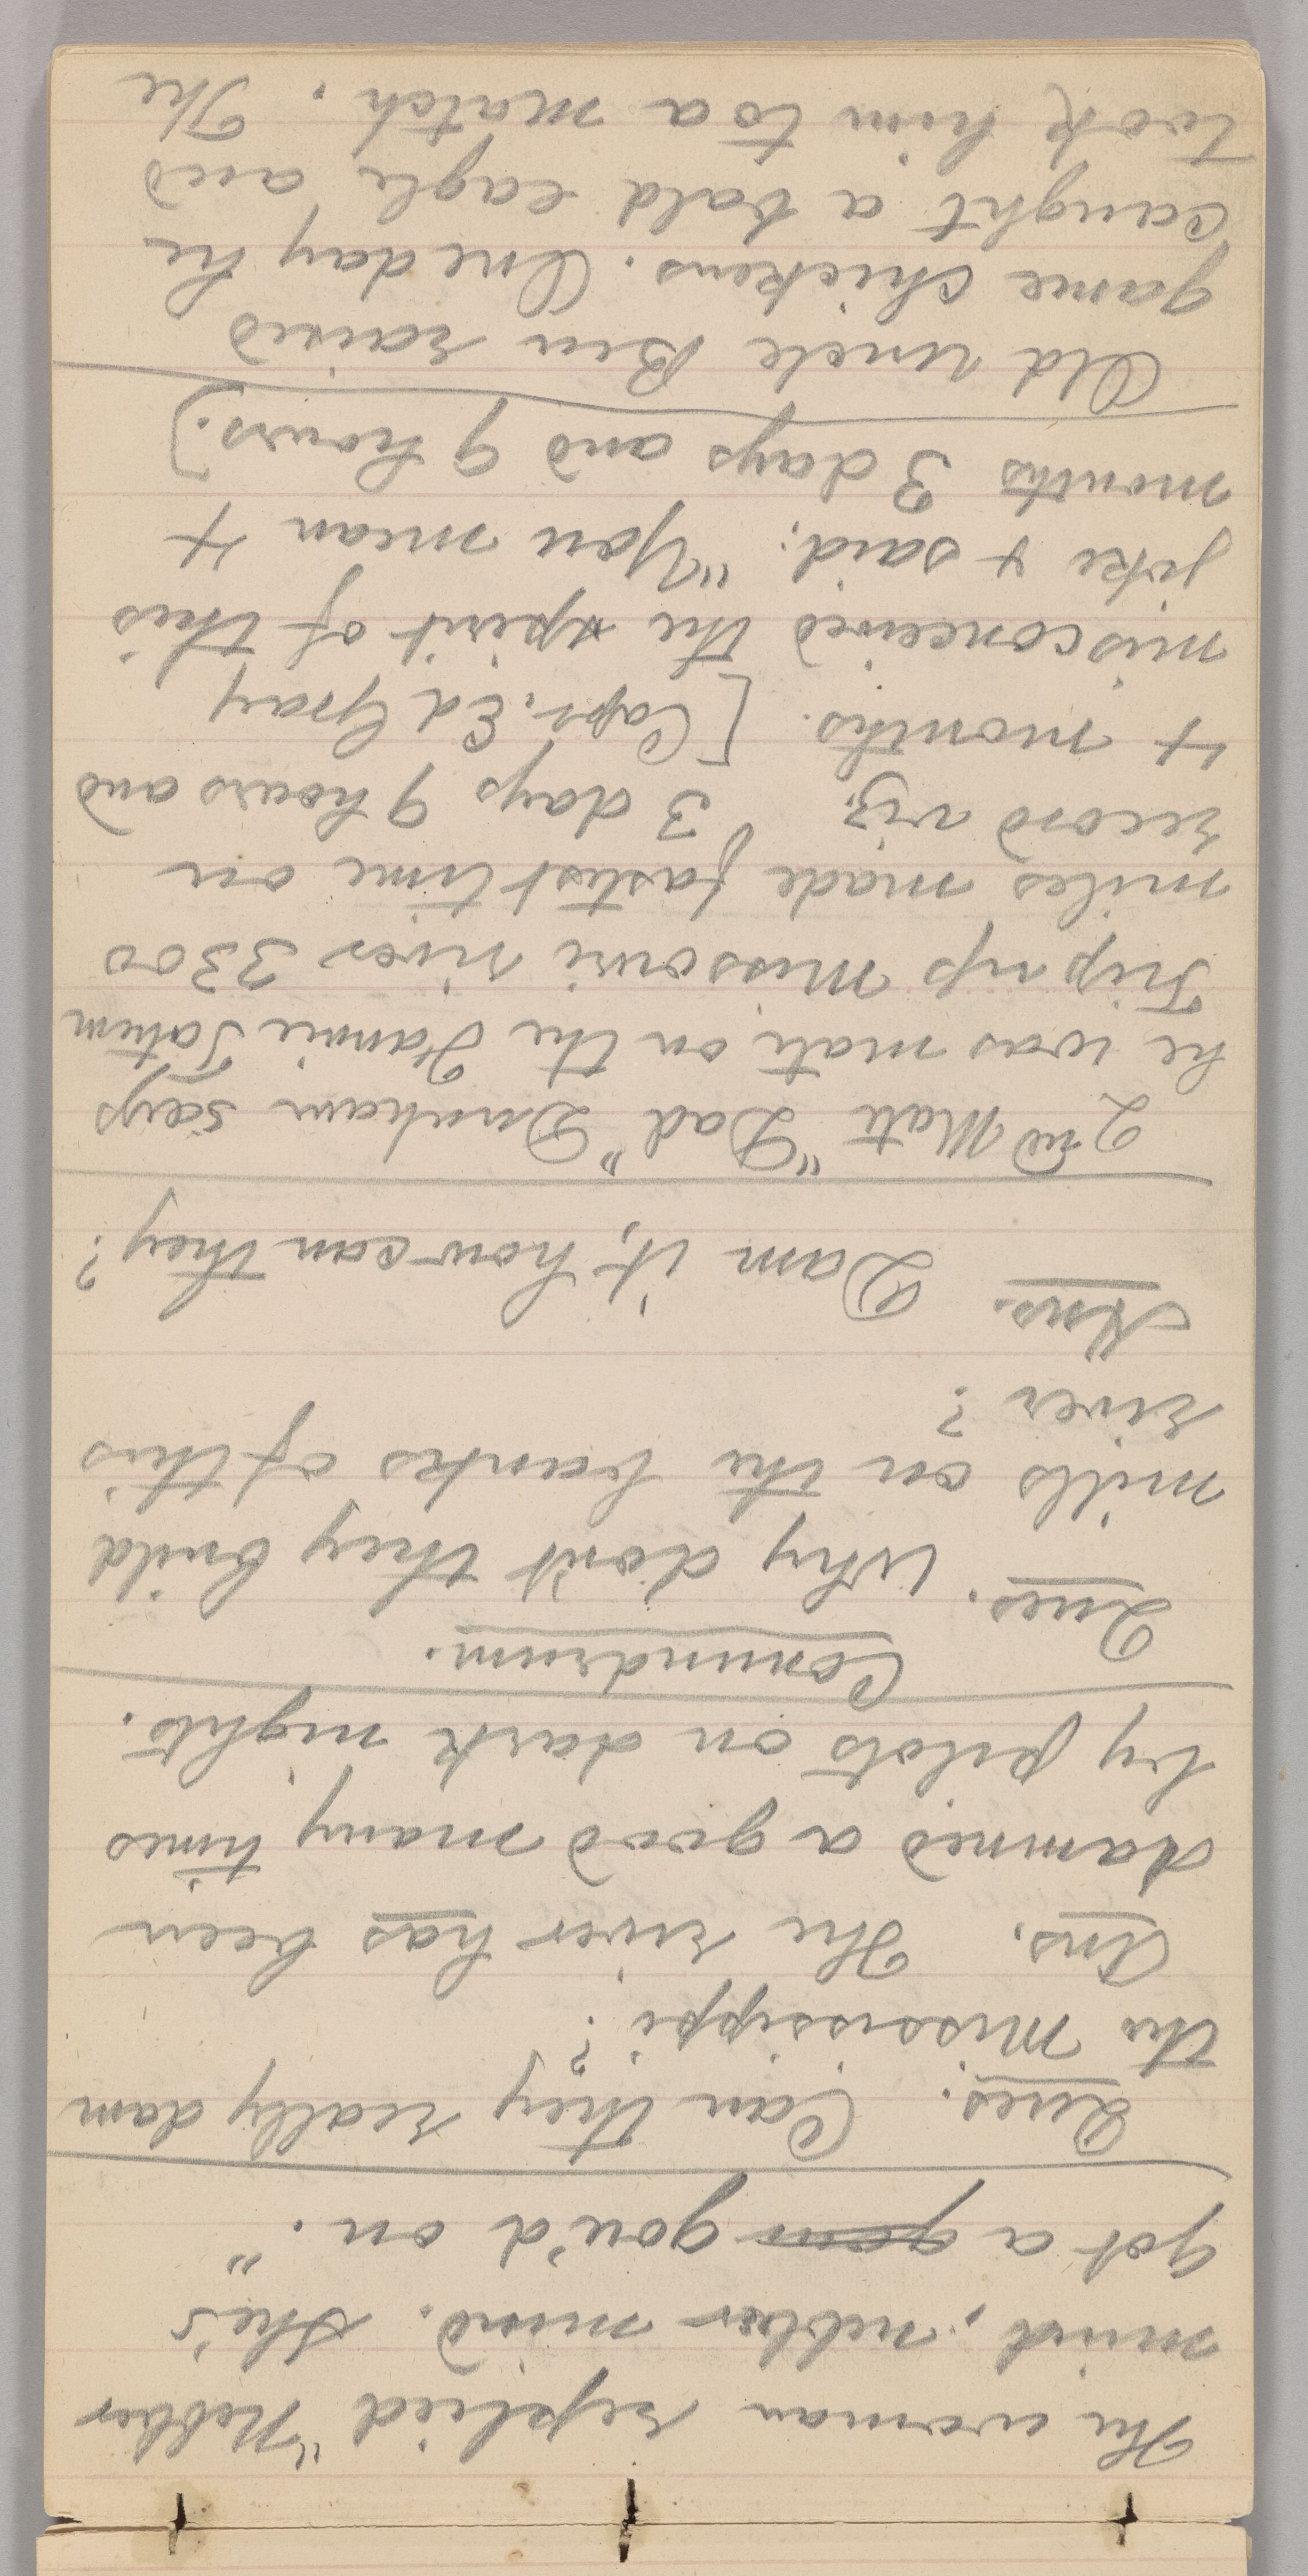 The woman replied "Nebber
mind, nebber mind. She's
got a gow gow'd on."
Ques. Can they really dam
the Mississippi?
Ans. The river has been
damned a good many times
by pilots on dark nights.
Conundrum.
Ques. Why don't they build
mills on the banks of this
river?
Ans. Dam it, how can they?
2nd Mate "Dad" Dunham says
he was mate on the Fannie Tatum
Trip up Missouri river 3300
miles made fastest time on
record viz. 3 days 9 hours and
4 months. [Capt. Ed Gray
misconceived the spirit of this
joke & said: "You mean 4
months 3 days and 9 hours.]
Old Uncle Ben raised
game chickens. One day he
caught a bald eagle and
took him to a match. The